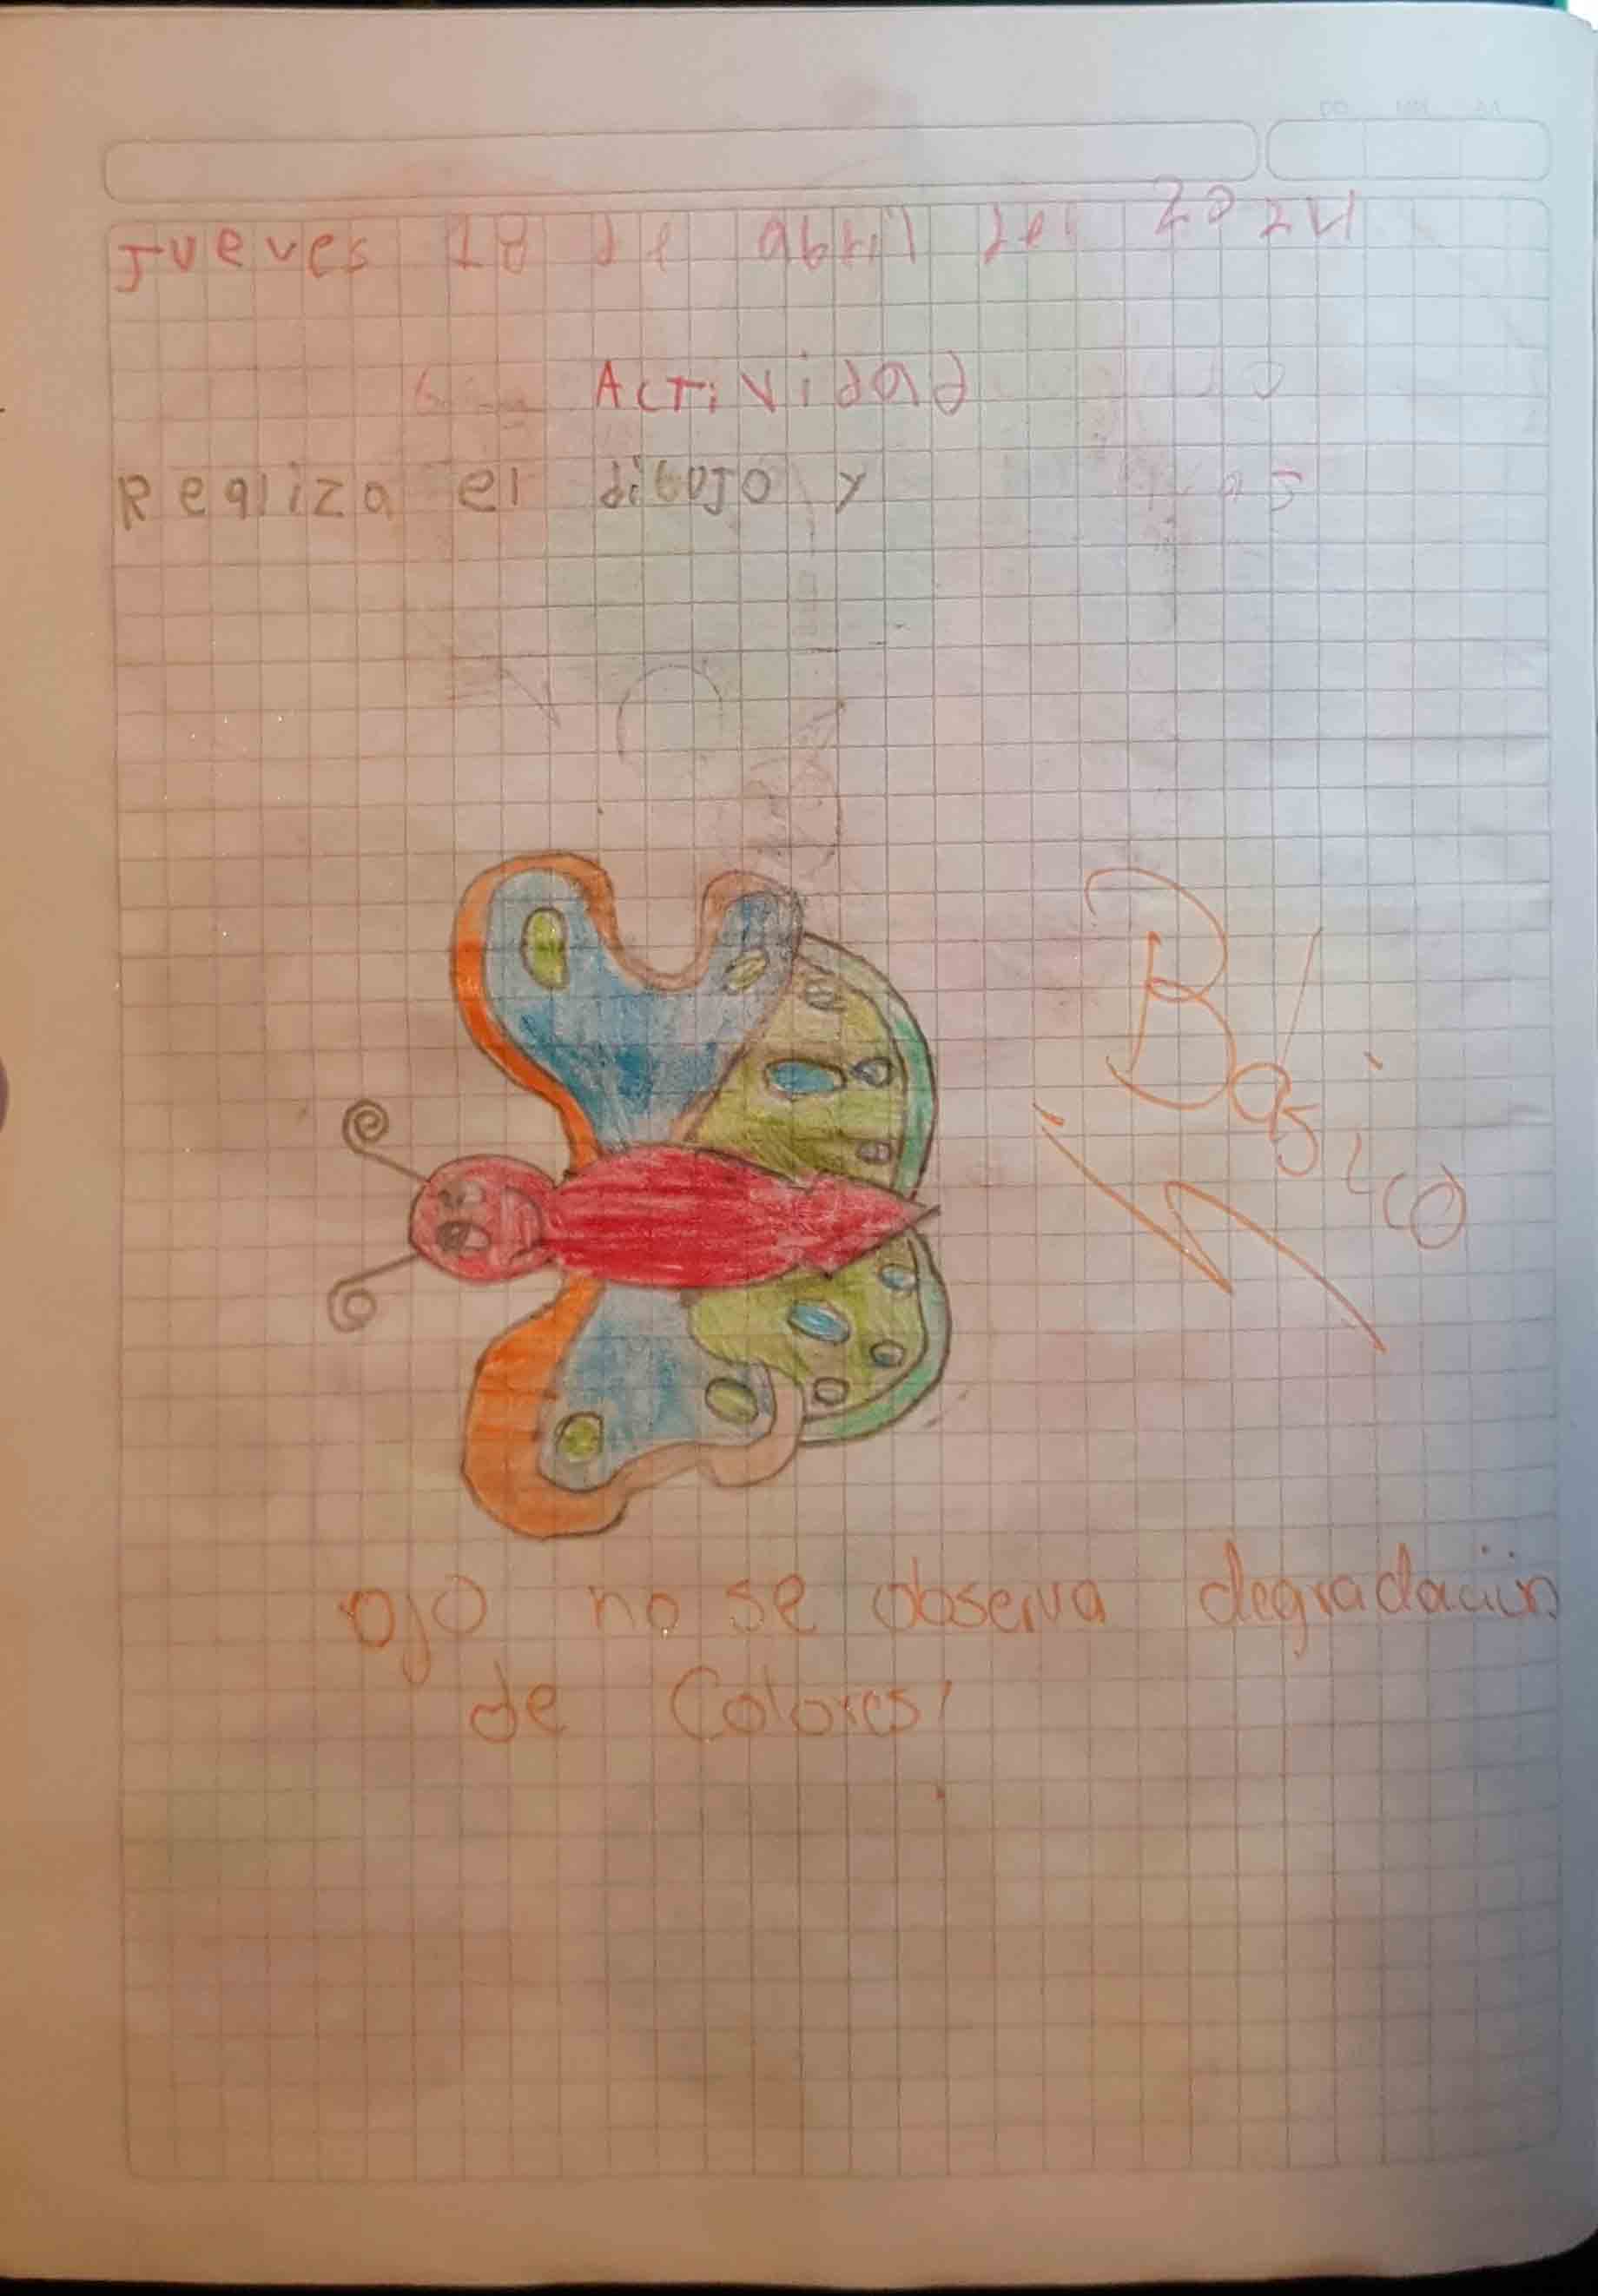 Jueves 18 de abril del 2024
Actividad
Realiza el dibujo y
Básico
ojo no se observa degradación
de Colores!